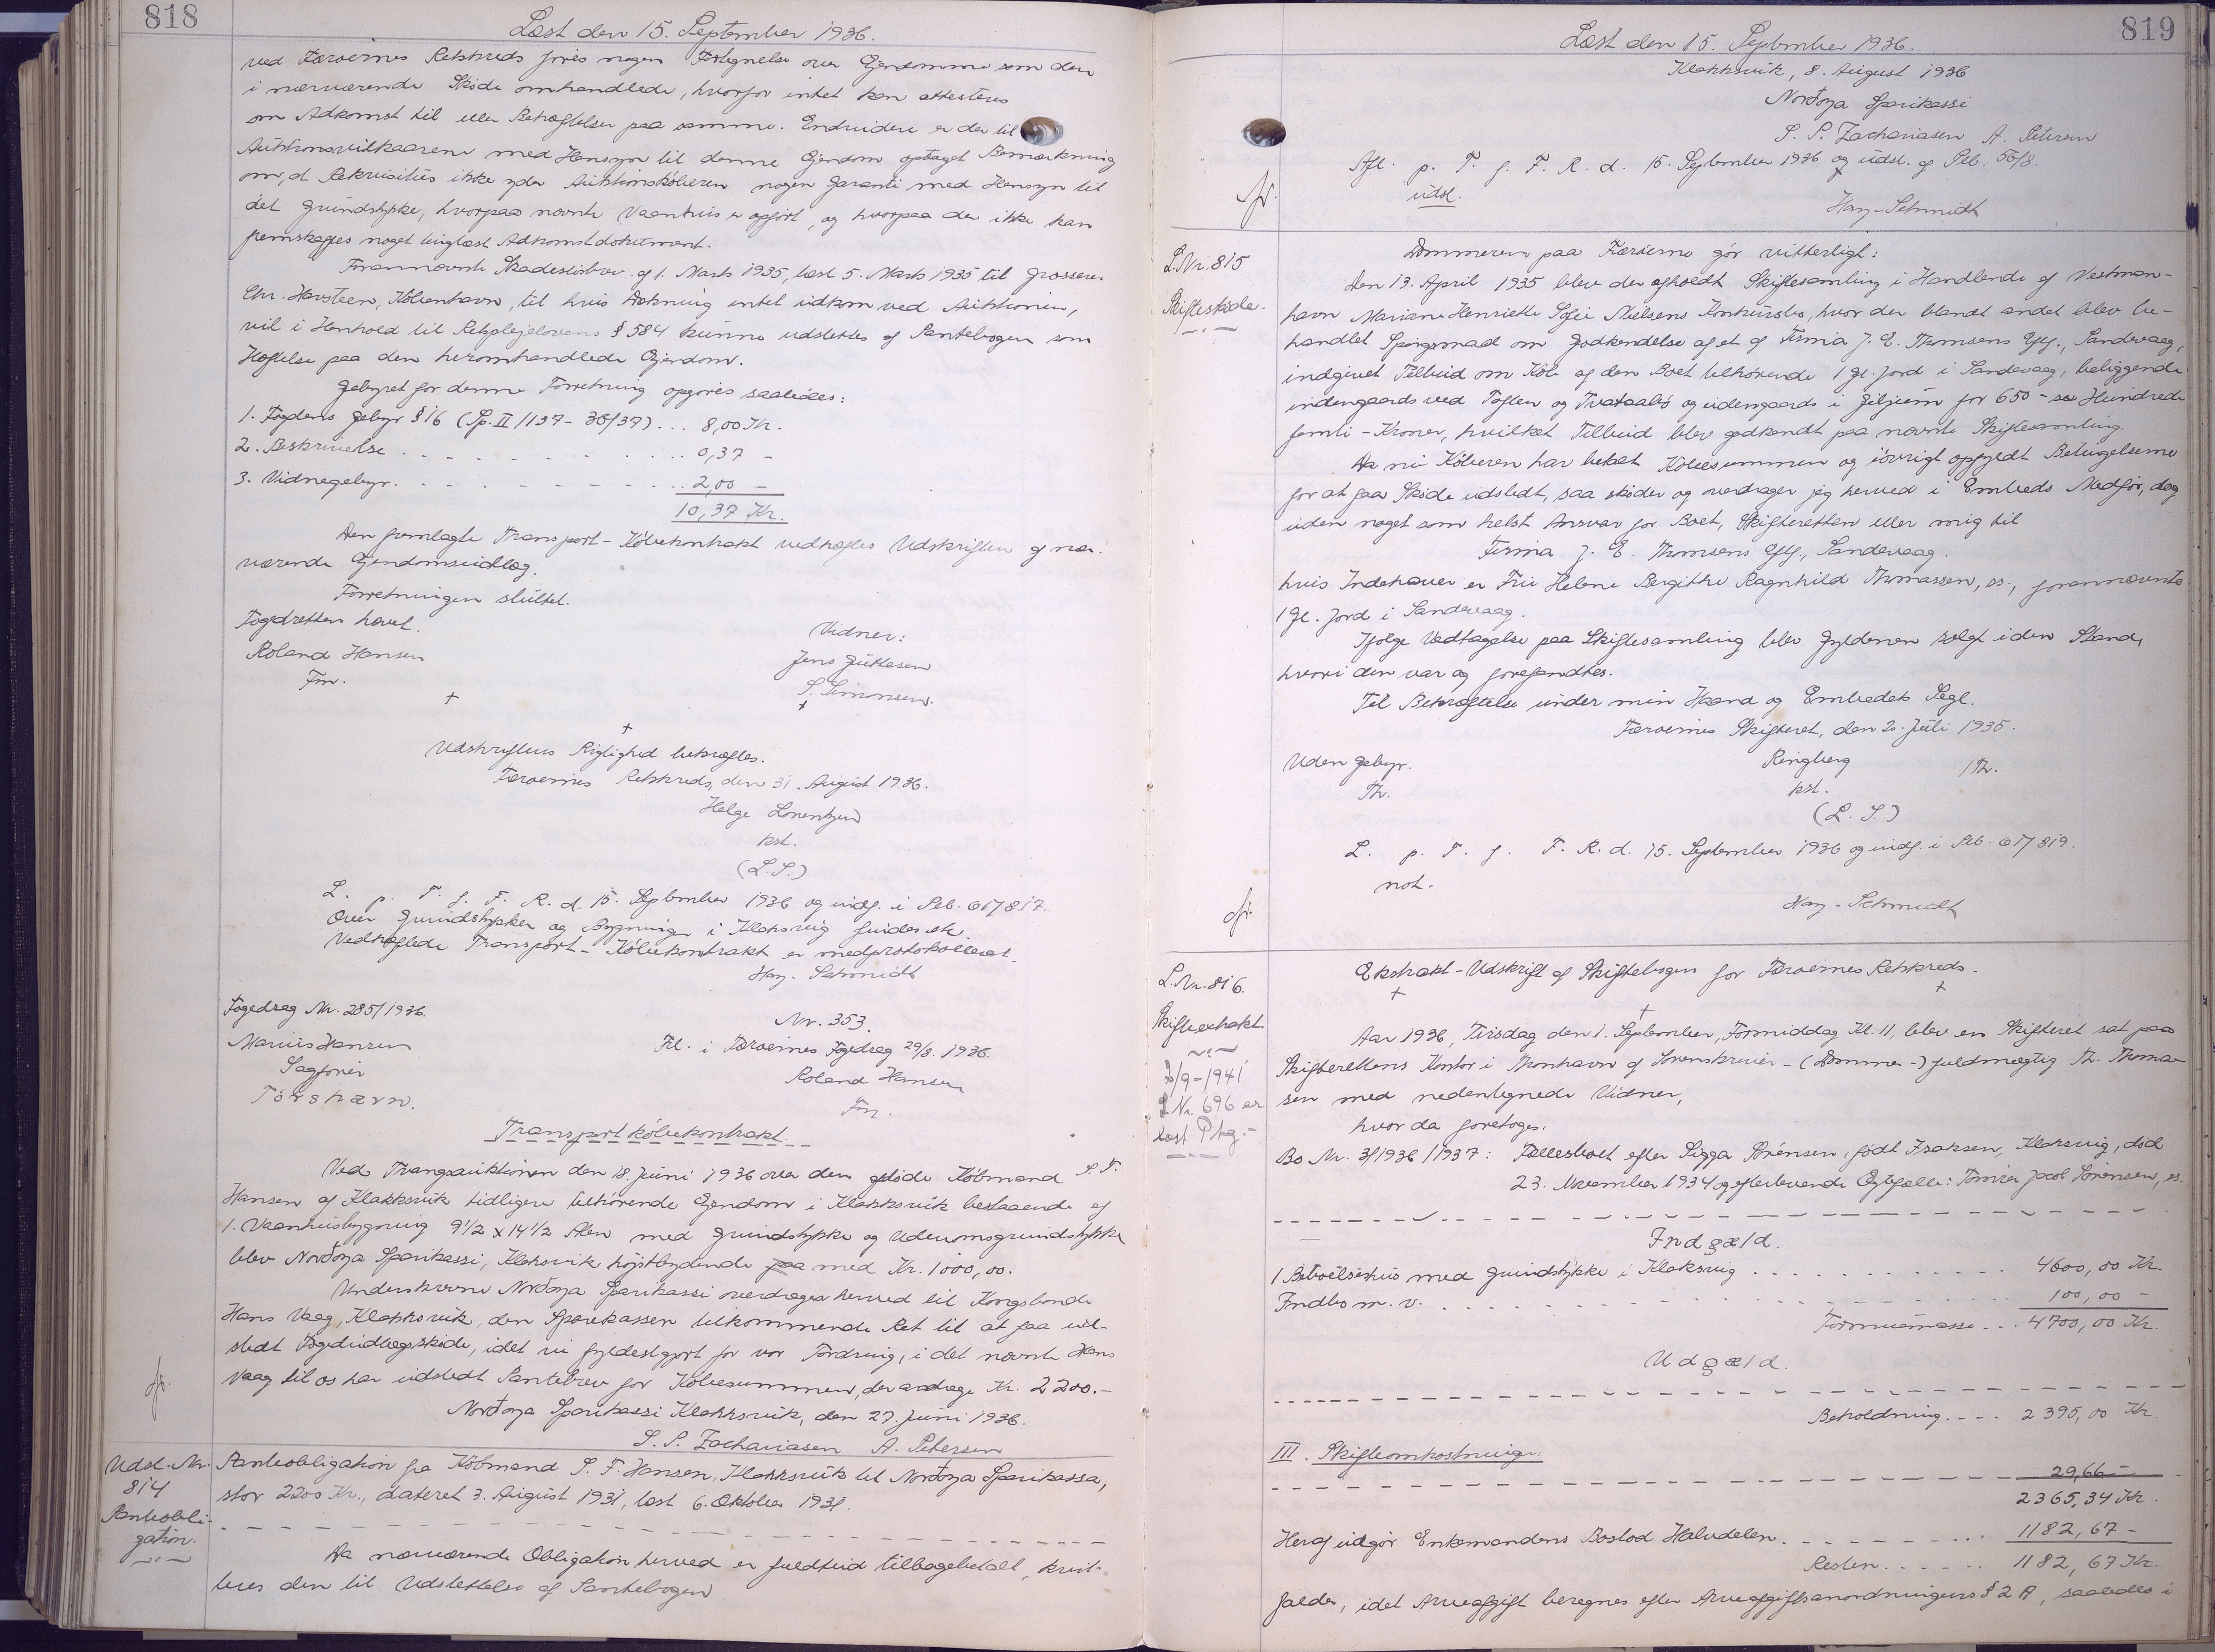 818
Læst den 15. September 1936.
ved Færøernes Retskreds føres nogen Fortegnelse over Ejendomme som den
i nærværende Skøde omhandlede, hvorfor intet kan attesteres
om Adkomst til eller Behæftelser paa samme. Endvidere er der til
Auktionsvilkaarene med Hensyn til denne Ejendom optaget Bemærkning
om, at Rekvisitus ikke yder Auktionskøberen nogen Garanti med Hensyn til
det Grundstykke, hvorpaa nævnte Vaanhus er opført, og hvorpaa der ikke kan
fremskaffes noget tinglæst Adkomstdokument.
Forannævnte Skadesløsbrev af 1. Marts 1935, læst 5. Marts 1935 til Grosserer
Chr. Havsteen, København, til hvis Dækning intet udkom ved Auktionen,
vil i Henhold til Retsplejelovens § 584 kunne udslettes af Pantebogen som
Hæftelse paa den heromhandlede Ejendom.
Gebyret for denne Forretning opgøres saaledes:
1. Fogdens Gebyr § 16 (Sp. II 1137 - 38/37) . . . 8,00 Kr.
2. Beskrivelse . . . . . . . . . 0,37 -
3. Vidnegebyr. . . . . . . . . . 2,00 -
10,37 Kr.
Den fremlagte Transport-Købekontrakt vedhæftes Udskriften af nær-
værende Ejendomsudlæg.
Forretningen sluttet.
Fogedretten hævet.
Roland Hansen
Fm.
Vidner:
Jens Guttesen
S. Simonsen.
Udskriftens Rigtighed bekræftes.
Færøernes Retskreds, den 31. August 1936.
Helge Lorentzen
kst.
(L.S.)
L. p. T. f. F. R. d. 15. September 1936 og indf. i Ptb. 61/817.
Over Grundstykker og Bygninger i Klaksvig findes ek
Vedhæftede Transport-Købekontrakt er medprotokolleret.
Hay-Schmidt
Fogedsag Nr. 285/1936.
Marius Hansen
Sagfører
Tórshavn.
Nr. 353.
Frl. i Færøernes Fogedsag 29/8. 1936.
Roland Hansen
Fm.
Transportkøbekontrakt.
Ved Tvangsauktionen den 18. Juni 1936 over den afdøde Købmand S. F.
Hansen af Klakksvik tidligere tilhørende Ejendom i Klakksvik bestaaende af
1. Vaanhusbygning 9 1/2 x 14 1/2 Alen med Grundstykke og Udenomsgrundstykke
blev Norðoya Sparikassi, Klaksvik højstbydende paa med Kr. 1000,00.
Underskrevne Norðoya Sparikassi overdrager herved til Kongsbonde
Hans Vaag, Klakksvik, den Sparekassen tilkommende Ret til at faa ud-
stedt Fogedudlægsskøde, idet vi fyldestgjort for vor Fordring, i det nævnte Hans
Vaag til os har udstedt Pantebrev for Købesummen, der andrage Kr. 2200.-
Norðoya Sparikassi Klakksvik, den 27. Juni 1936.
S. P. Zachariasen A. Petersen
fr.
Udsl. Nr.
814
Panteobli-
gation.
Panteobligation fra Købmand S. F. Hansen, Klakksvik til Norðoya Sparikassa,
stor 2200 Kr., dateret 3. August 1931, læst 6. Oktober 1931.
Da nærværende Obligation herved er fuldtud tilbagebetalt, kvit-
teres den til Udslettelse af Pantebogen
819
Læst den 15. September 1936.
Klakksvik, 8. August 1936
Norðoya Sparikassi
S. P. Zachariasen A. Petersen
Afl. p. T. f. F. R. d. 15. September 1936 og udsl. af Ptb. 56/8.
udsl.
Hay-Schmidt
fr.
L. Nr. 815
Skifteskøde.
Dommeren paa Færøerne gør vitterligt:
Den 13. April 1935 blev der afholdt Skiftesamling i Handlende af Vestman-
havn Mariane Henriette Sofie Nielsens Konkursbo, hvor der blandt andet blev be-
handlet Spørgsmaal om Godkendelse af et af Firma J. E. Thomsens Eftf., Sandevaag,
indgivet Tilbud om Køb af den Boet tilhørende 1 Gl. Jord i Sandevaag, beliggende
indengaards ved Toften og Tvataabø og udengaards i Giljum for 650 - seks Hundrede
femti - Kroner, hvilket Tilbud blev godkendt paa nævnte Skiftesamling.
Da nu Køberen har betalt Købesummen og iøvrigt opfyldt Betingelserne
for at faa Skøde udstedt, saa skøder og overdrager jeg herved i Embeds Medfør, dog
uden noget som helst Ansvar for Boet, Skifteretten eller mig til
Firma J. E. Thomsens Eftf., Sandevaag.
hvis Indehaver er Fru Helene Bergithe Ragnhild Thomassen, ss., forannævnte
1 Gl. Jord i Sandevaag.
Ifølge Vedtagelse paa Skiftesamling blev Gyldenen solgt i den Stand,
hvori den var og forefandtes.
Til Bekræftelse under min Haand og Embedets Segl.
Færøernes Skifteret, den 20. Juli 1935.
Uden Gebyr.
Th.
Ringberg
kst.
/Th.
(L. S.)
L. p. T. f. F. R. d. 15. September 1936 og indf. i Ptb. 61/819.
not.
Hay-Schmidt
fr.
L. Nr. 816.
Skifteextrakt
5/9-1941
L Nr. 696 er
læst Ptg.-
Ekstrakt-Udskrift af Skiftebogen for Færøernes Retskreds.
Aar 1936, Tirsdag den 1. September, Formiddag Kl. 11, blev en Skifteret sat paa
Skifterettens Kontor i Thorshavn af Sorenskriver- (Dommer-) fuldmægtig Th. Thomas-
sen med nedentegnede Vidner,
hvor da foretoges:
Bo Nr. 3/1936 / 1937: Fællesboet efter Sigga Sørensen, født Isaksen, Klaksvig, død
23. November 1934 og efterlevende Ægtefælle: Tømrer Jacob Sørensen, ss.
Indgæld.
1 Beboelseshus med Grundstykke i Klaksvig . . . . . . 4600,00 Kr.
Indbo m. v. . . . . . . . . 100,00 -
Formuemasse . . . 4700,00 Kr.
Udgæld.
Beholdning. . . . 2395,00 Kr.
III. Skifteomkostninger:
29,66 -
2365,34 Kr.
Heraf udgør Enkemandens Boslod Halvdelen. . . . . . 1182,67 -
Resten. . . . . . 1182,67 Kr.
falder, idet Arveafgift beregnes efter Arveafgiftsanordningens § 2 A, saaledes i